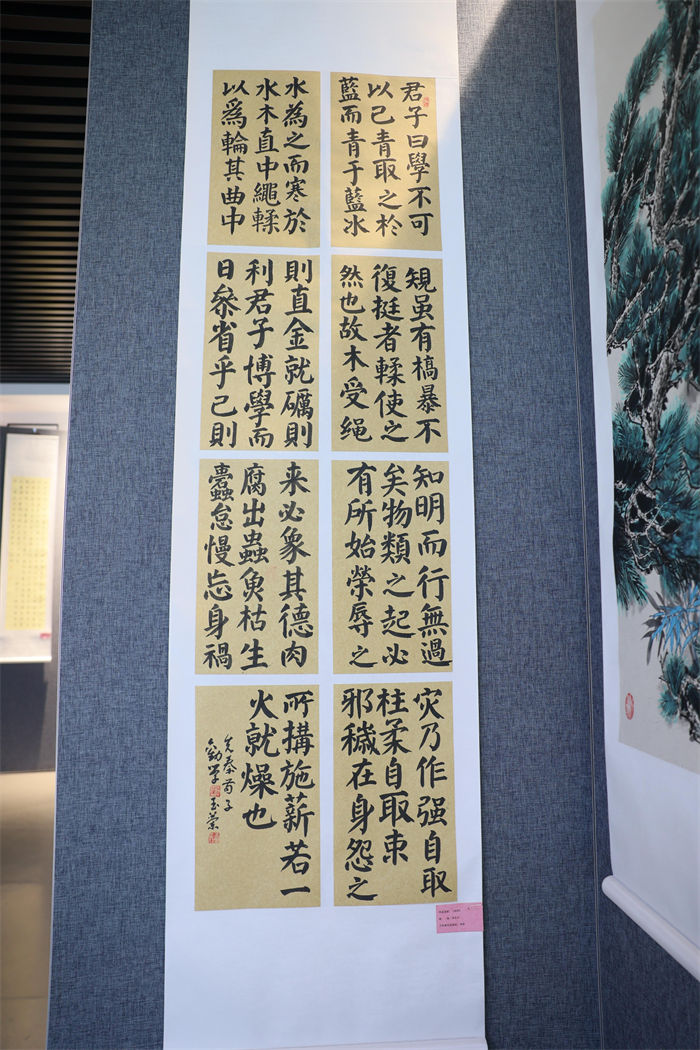 君子曰學不可
以已青取之於
藍而青于藍冰
水為之而寒於
水木直中繩輮
以爲輪其曲中
䂓虽有槁暴不
復挺者輮使之
然也故木受绳
則直金就礪則
利君子博學而
日參省乎己則
知明而行無過
矣物類之起必
有所始榮辱之
来必象其德肉
腐出蟲魚枯生
蠹怠慢忘身禍
灾乃作强自取
柱柔自取束
邪穢在身怨之
所構施薪若一
火就燥也
先秦荀子
勸学 玉荣